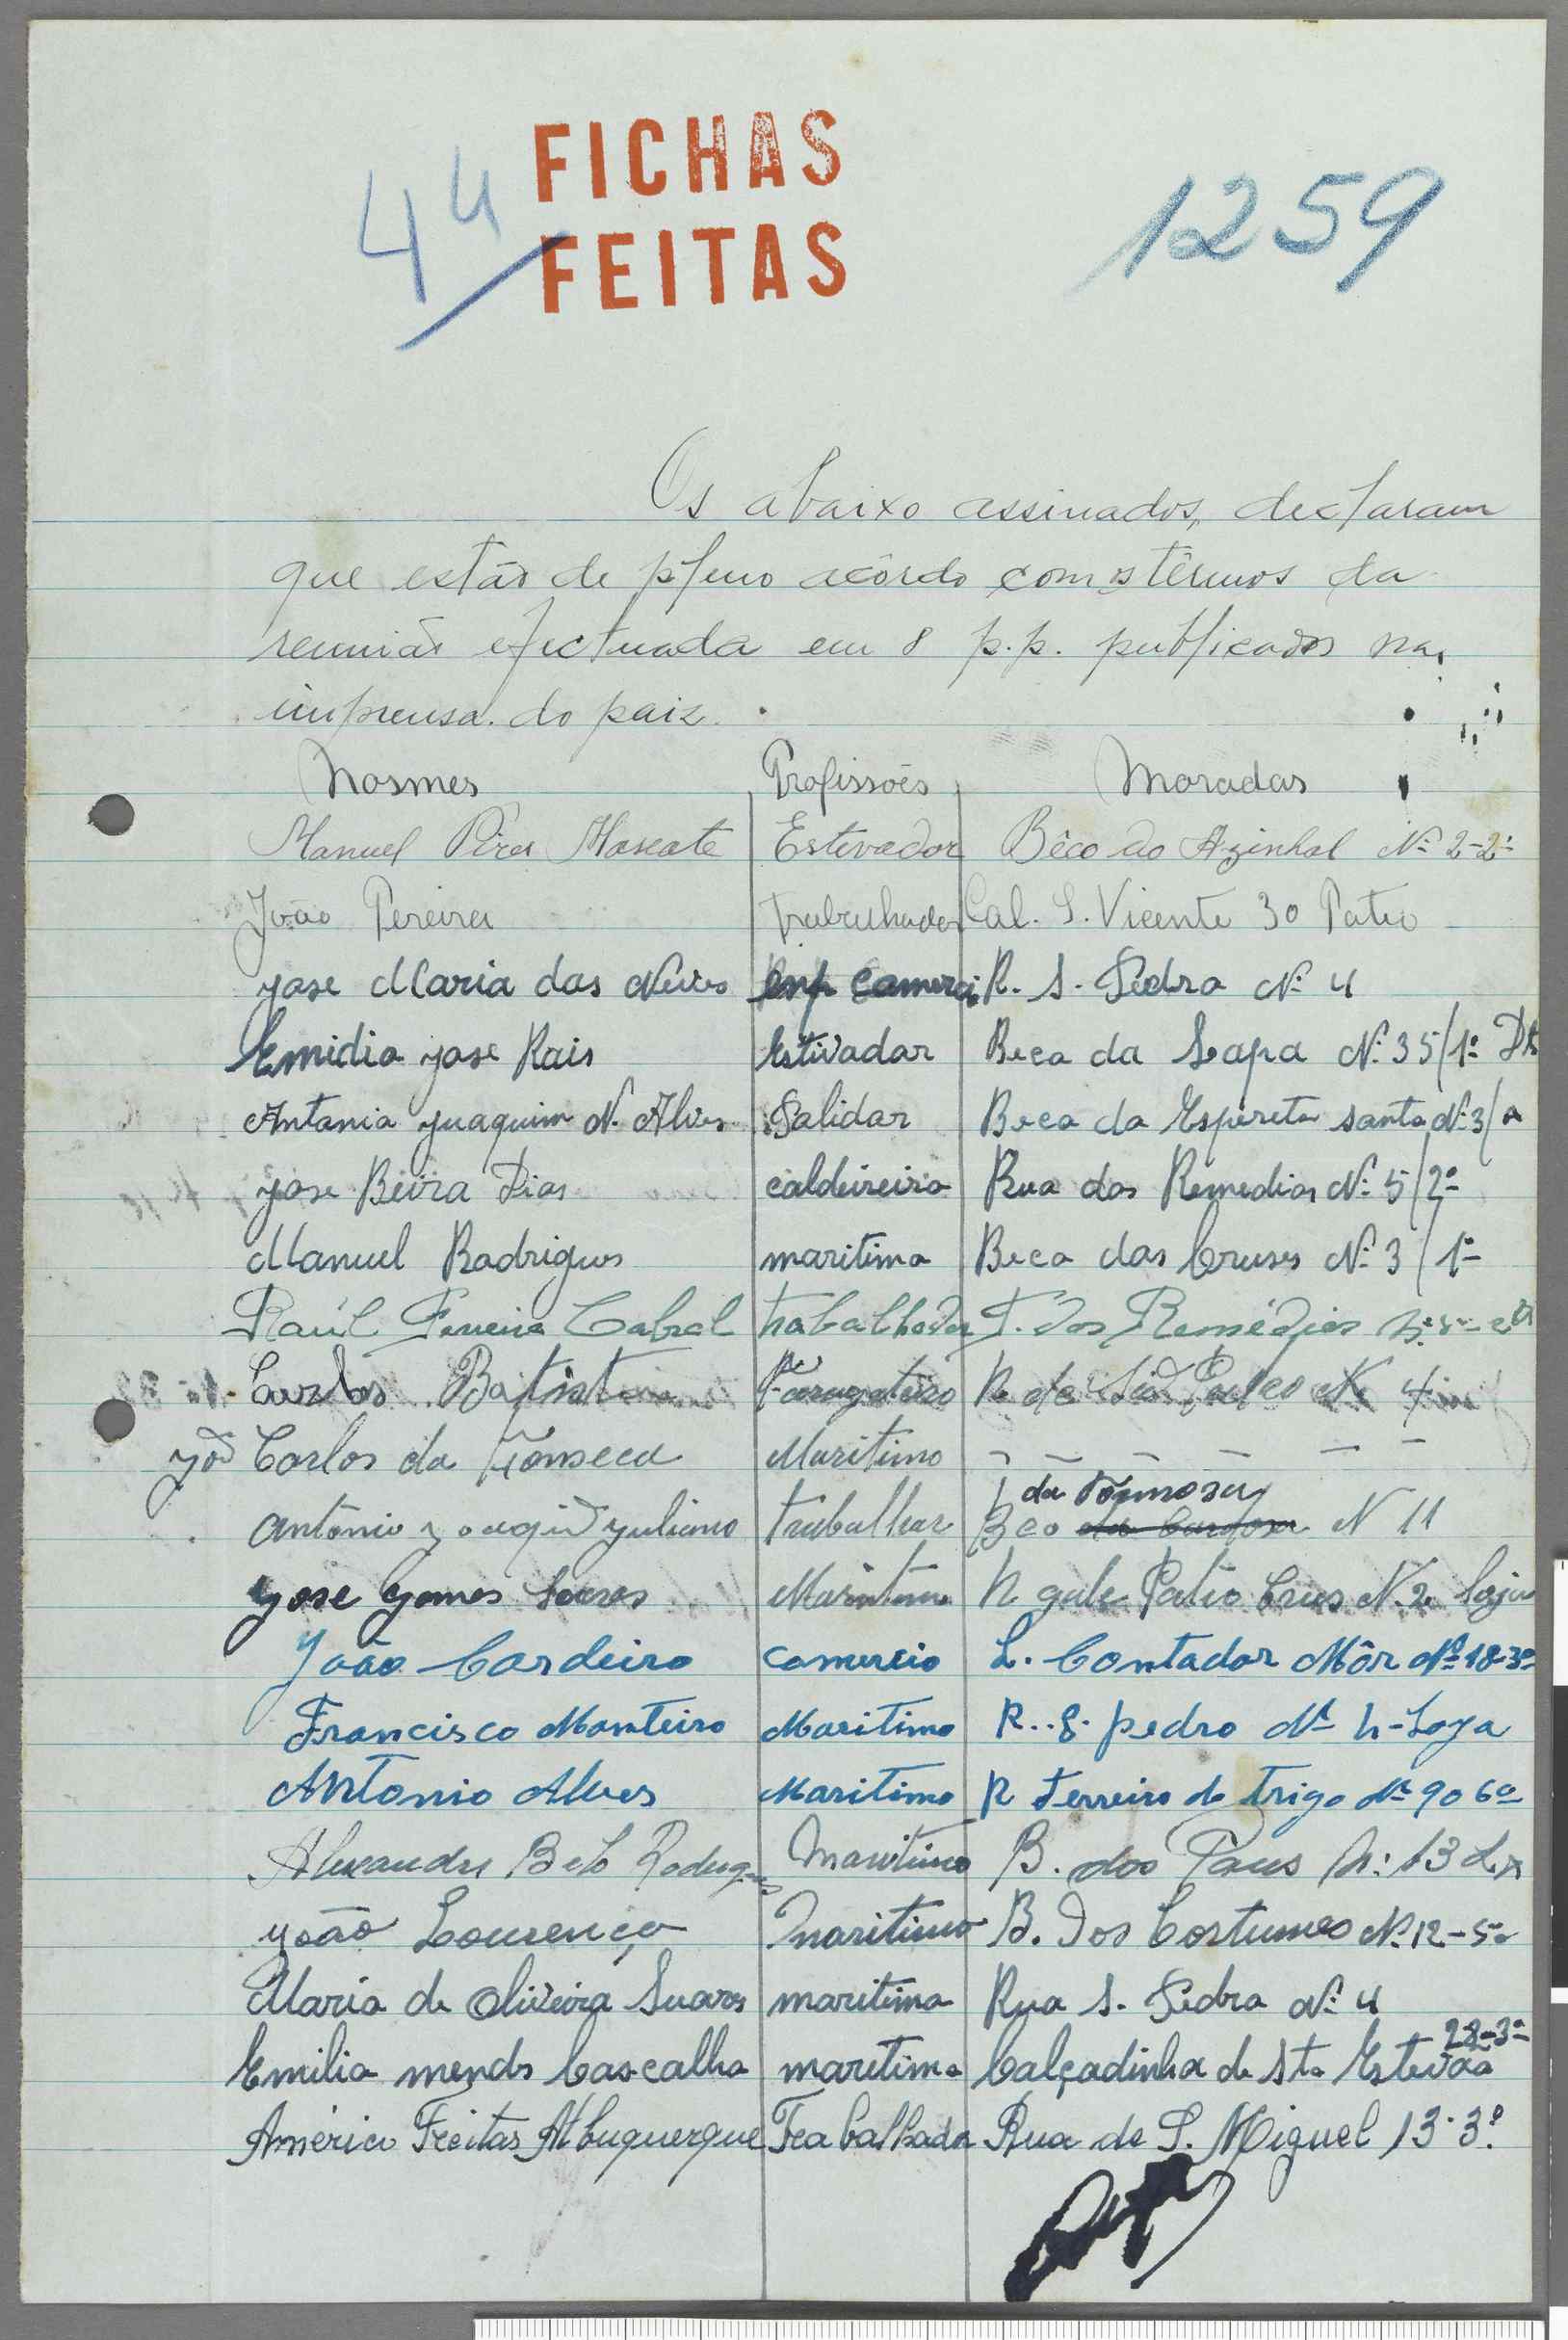 FICHAS
FEITAS
44
1259
Os abaixo assinados, declaram
que estão de pleno acôrdo com os têrmos da
reunião efectuada em 8 p.p. publicados na
imprensa do paiz.
Nosmes Profissões Moradas
Manuel Pires Mascate Estivador Bêco do Azinhal Nº 2-2º
João Pereira Trabulhador Cal. S. Vicente 30 Pateo
jose Maria das Neives emp Comerci R. S. Pedro Nº 4
Emidio jose Rais Estivador Beco da Lapa Nº 35/1º Dt
Antonio juaquim N. Alves Solidor Beco da Espireto santo Nº 3/
jose Beira Dias caldeireiro Rua dos Remedios Nº 5/2º
Manuel Rodrigues maritimo Beco das Cruses Nº 3/1º
Raúl Ferreira Cabral trabalhador T. dos Remédios
Carlos Batista Faragateiro R de São Pedro Nº 4
Carlos da Fonseca Maritimo - - - - - -
da Formosa
António Juliano trabalhar Beo N 11
jose gomes Maritimo Patio Crus N. 2 loja
João Cordeiro comercio L. Contador Môr Nº 18-3º
Francisco Monteiro Maritimo R. S. pedro Nº 4-Loja
Antonio Alves Maritimo R Terreiro do Trigo Nº 90 6º
Alexandre Belo Rodrigues Maritimo B. dos Paus Nº 13 Lx
João Lourenço Maritimo B. dos Cortumes Nº 12-5º
Mario de Oliveira Suares maritimo Rua S. Pedro Nº 4
28-3º
Emilio mends Cascalho maretimo Calçadinha de Sto Estevão
Américo Freitas Albuquerque Trabalhador Rua de S. Miguel 13-3º